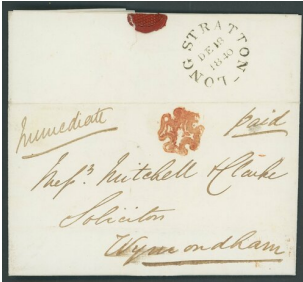 LONG STRATTON
DE 18
1840
Immediate
paid
Messrs. Mitchell & Clarke
Solicitors
Wymondham